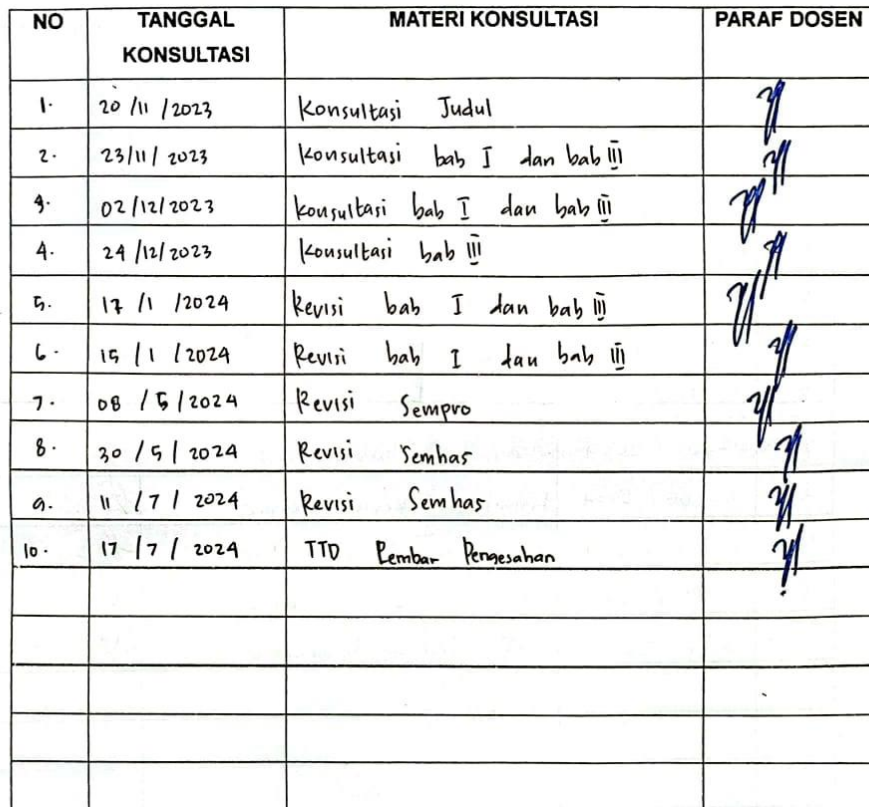 NO TANGGAL KONSULTASI MATERI KONSULTASI PARAF DOSEN
1. 20/11/2023 Konsultasi Judul
2. 23/11/2023 Konsultasi bab I dan bab III
3. 02/12/2023 Konsultasi bab I dan bab III
4. 24/12/2023 Konsultasi bab III
5. 17/1/2024 Revisi bab I dan bab III
6. 15/1/2024 Revisi bab I dan bab III
7. 08/5/2024 Revisi Sempro
8. 30/5/2024 Revisi Semhas
9. 11/7/2024 Revisi Semhas
10. 17/7/2024 TTD Lembar Pengesahan